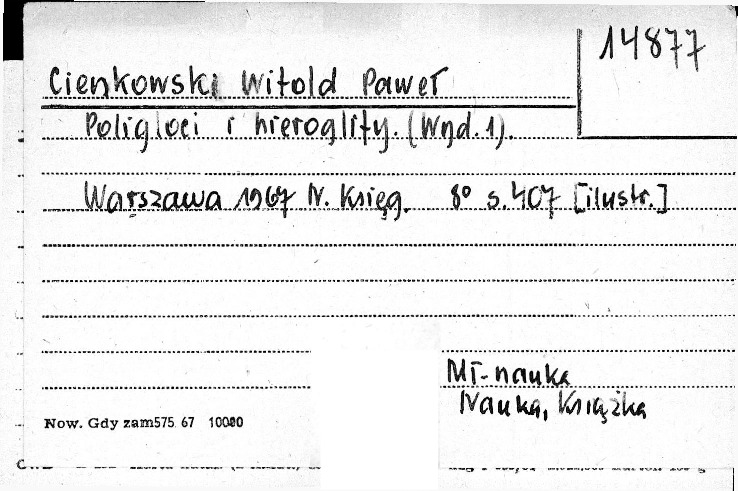 14877
Cienkowski Witold Paweł
Poligloci i hieroglify. (Wyd. 1).
Warszawa 1967 N. Księg. 8° s. 407 [ilustr.]
Mł-nauka
Nauka, Książka
Now. Gdy zam575 67 10000